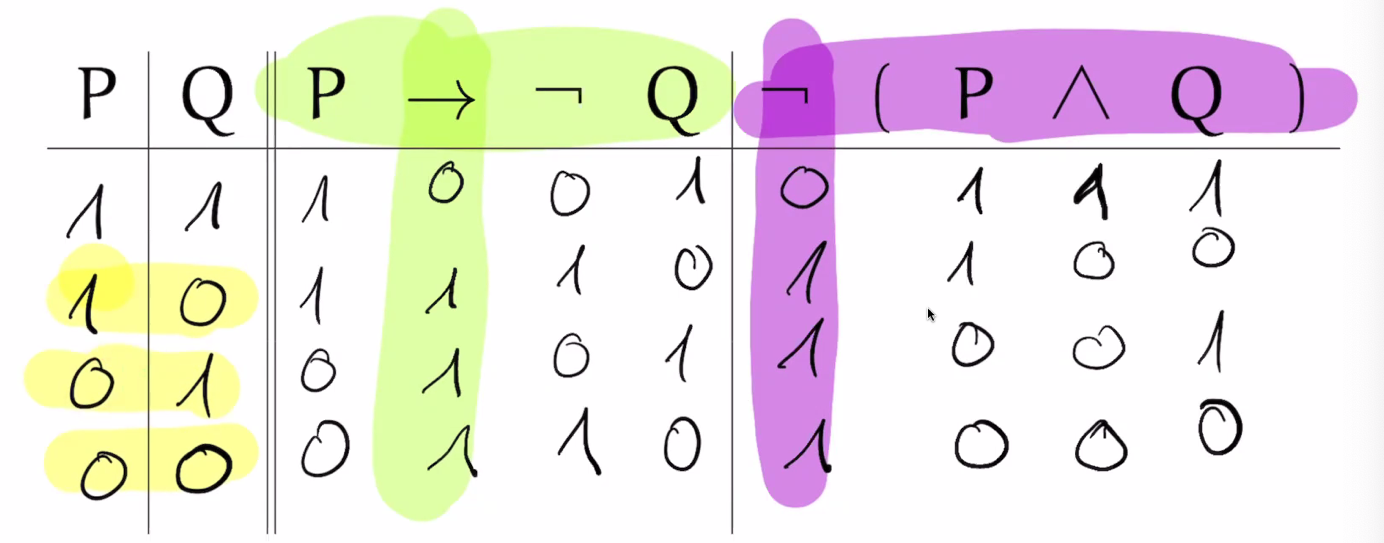 P Q P → ¬ Q ¬ ( P ∧ Q )
1 1 1 0 0 1 0 1 1 1
1 0 1 1 1 0 1 1 0 0
0 1 0 1 0 1 1 0 0 1
0 0 0 1 1 0 1 0 0 0